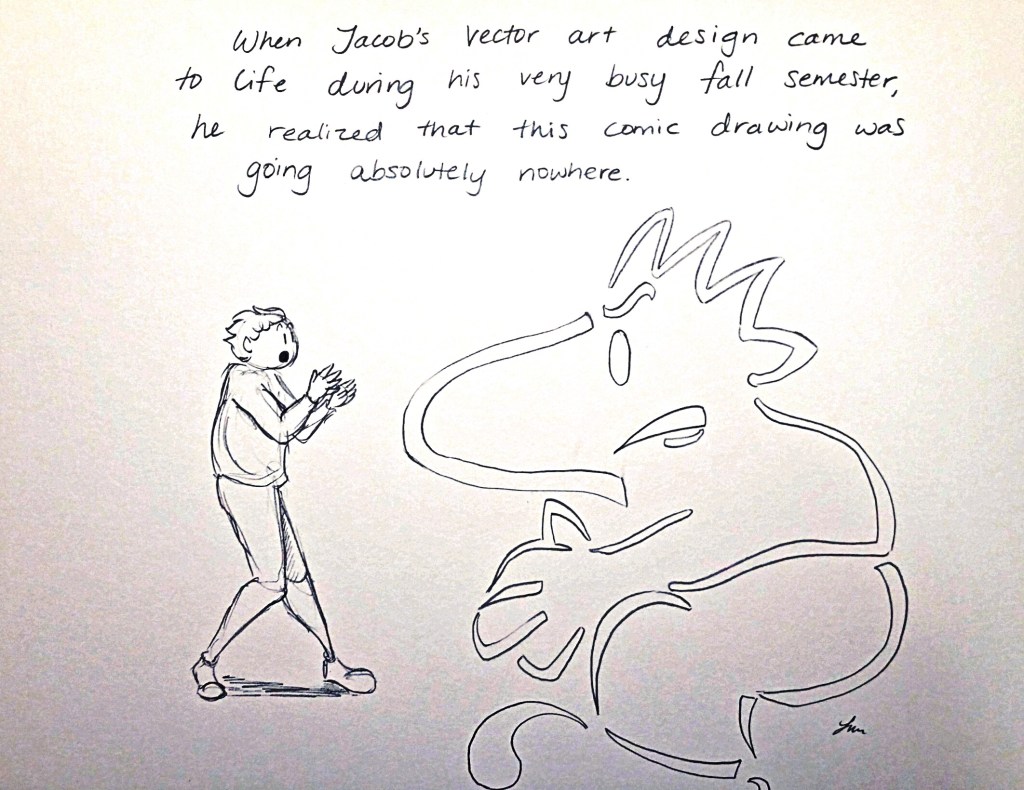 When Jacob's vector art design came
to life during his very busy fall semester,
he realized that this comic drawing was
going absolutely nowhere.